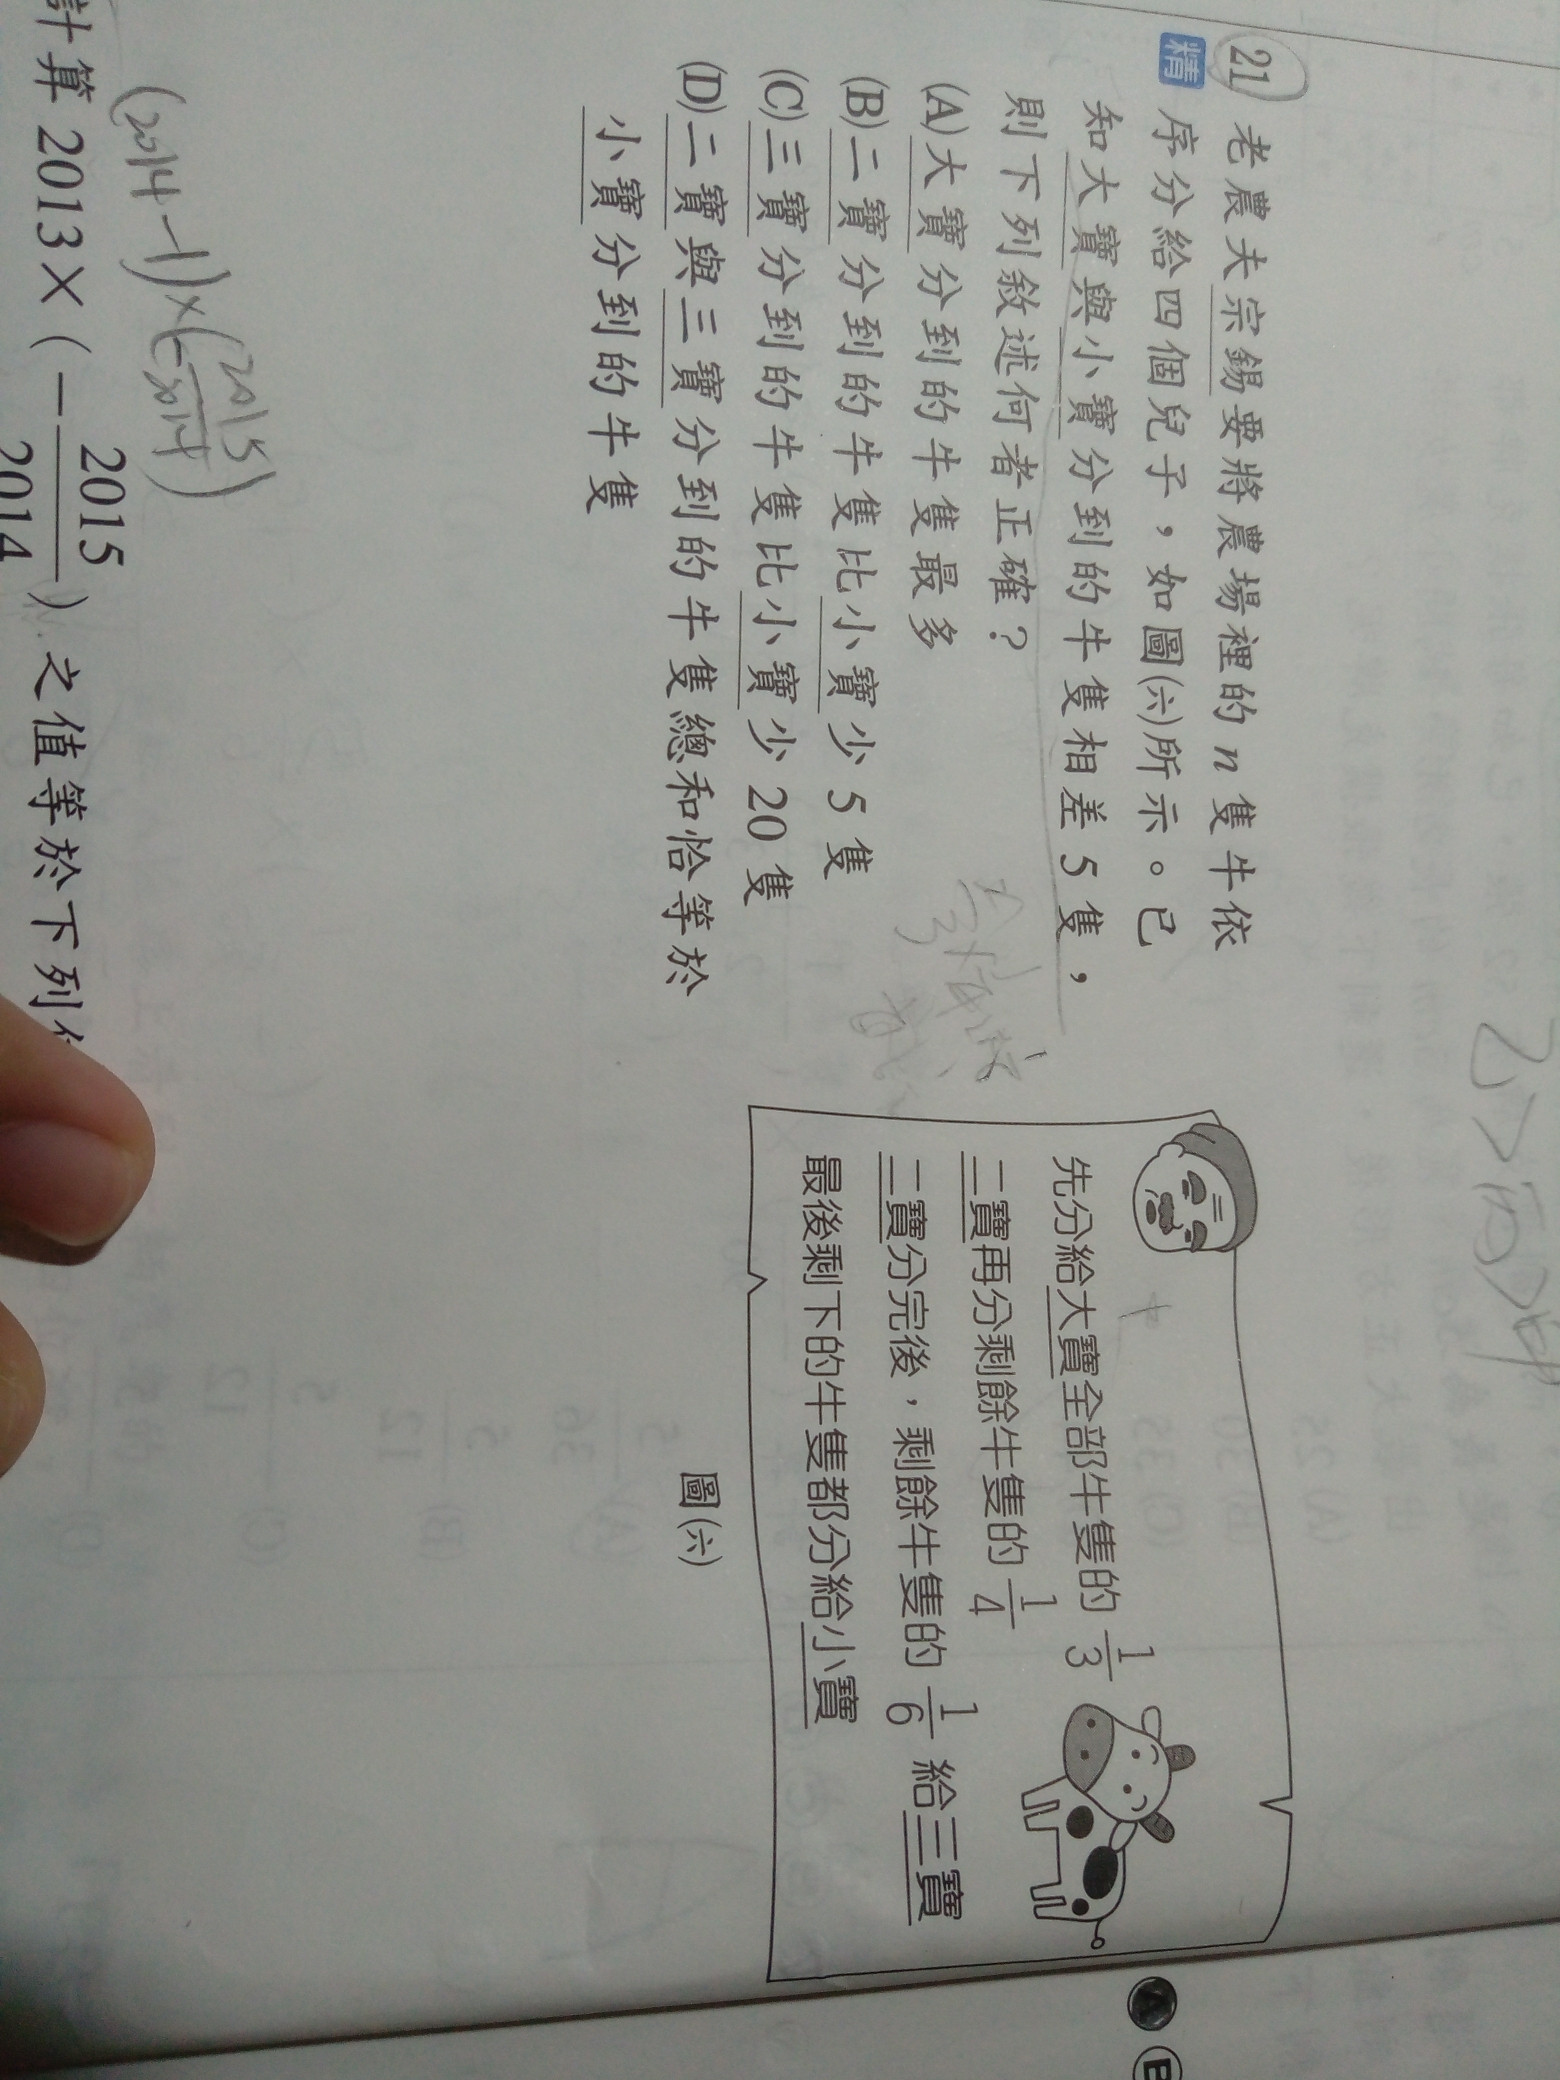 21 老農夫宗錫要將農場裡的 n 隻牛依
精 序分給四個兒子，如圖(六)所示。已
知大寶與小寶分到的牛隻相差 5 隻，
則下列敘述何者正確？
(A)大寶分到的牛隻最多
(B)二寶分到的牛隻比小寶少 5 隻
(C)三寶分到的牛隻比小寶少 20 隻
(D)二寶與三寶分到的牛隻總和恰等於
小寶分到的牛隻
先分給大寶全部牛隻的 1/3
二寶再分剩餘牛隻的 1/4
二寶分完後，剩餘牛隻的 1/6 給三寶
最後剩下的牛隻都分給小寶
圖(六)
(2014-1)×(2015/2014)
計算 2013×(－2015/2014)之值等於下列